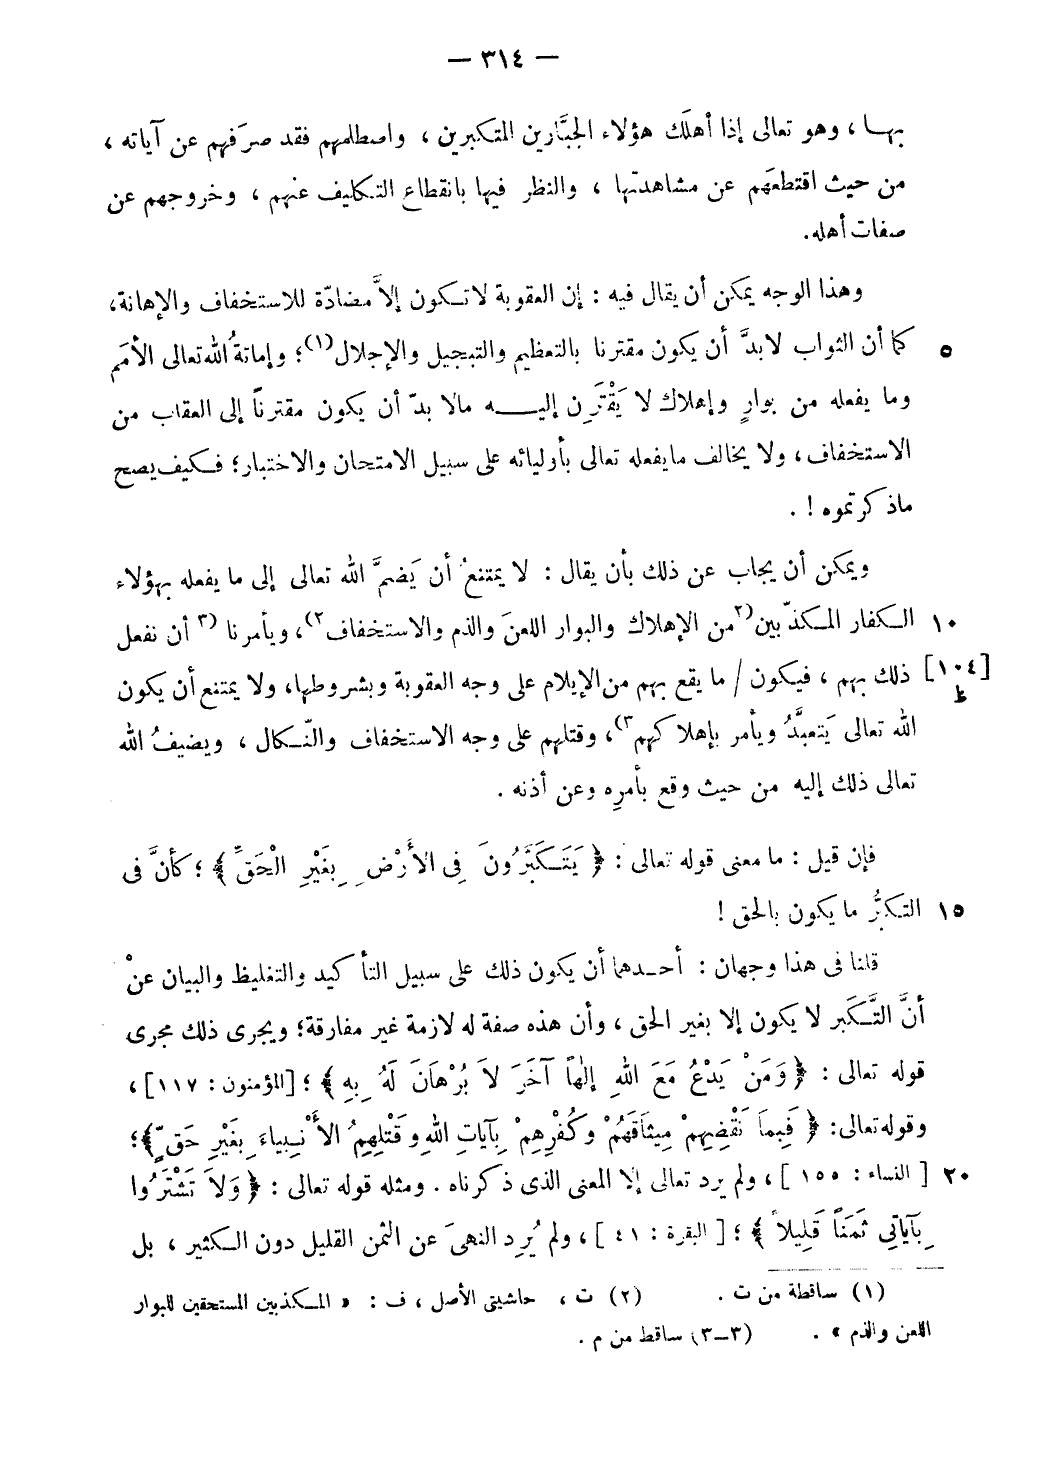 — ٣١٤ —
بها ، وهو تعالى إذا أهلَك هؤلاء الجبَّارين المتكبرين ، واصطلمهم فقد صرَفهم عن آياته ،
من حيث اقتطعَهم عن مشاهدتها ، والنظر فيها بانقطاع التكليف عنهم ، وخروجهم عن
صفات أهله.
وهذا الوجه يمكن أن يقال فيه : إن العقوبة لا تكون إلاَّ مضادّة للاستخفاف والإهانة،
٥ كما أن الثواب لابدَّ أن يكون مقترنا بالتعظيم والتبجيل والإجلال(١)؛ وإماتةُ الله تعالى الأمَم
وما يفعله من بوارٍ وإهلاك لا يَقْتَرِن إليه مالا بدّ أن يكون مقترناً إلى العقاب من
الاستخفاف، ولا يخالف ما يفعله تعالى بأوليائه على سبيل الامتحان والاختبار؛ فكيف يصح
ماذكرتموه ! .
ويمكن أن يجاب عن ذلك بأن يقال : لا يمتنعُ أن يَضمَّ الله تعالى إلى ما يفعله بهؤلاء
١٠ الكفار المكذّبين(٢من الإهلاك والبوار اللعنَ والذم والاستخفاف٢)، ويأمرنا (٣ أن نفعل
[١٠٤ ظ] ذلك بهم ، فيكون / ما يقع بهم من الإيلام على وجه العقوبة وبشروطها، ولا يمتنع أن يكون
الله تعالى يَتعبَّدُ ويأمر بإهلاكهم٣)، وقتلهم على وجه الاستخفاف والنّكال ، ويضيفُ الله
تعالى ذلك إليه من حيث وقع بأمرِه وعن أذنه .
فإن قيل : ما معنى قوله تعالى : ﴿ يَتَكَبَّرُونَ فِى الأَرْضِ بِغَيْرِ الْحَقِّ ﴾ ؛ كأنَّ فى
١٥ التكبُّر ما يكون بالحق !
قلنا فى هذا وجهان : أحدهما أن يكون ذلك على سبيل التأكيد والتغليظ والبيان عنْ
أنَّ التَّكَبر لا يكون إلا بغير الحق ، وأن هذه صفة له لازمة غير مفارقة؛ ويجرى ذلك مجرى
قوله تعالى : ﴿ وَمَنْ يَدْعُ مَعَ اللهِ إلٰهاً آخَرَ لاَ بُرْهَانَ لَهُ بِهِ ﴾ ؛ [المؤمنون : ١١٧] ،
وقوله تعالى: ﴿ فَبِمَا نَقْضِهِمْ مِيثَاقَهُمْ وَكُفْرِهِمْ بِآيَاتِ اللهِ وَقَتْلِهِمُ الأَنْبِيَاءَ بِغَيْرِ حَقٍّ﴾؛
٢٠ [ النساء : ١٥٥ ] ، ولم يرد تعالى إلا المعنى الذى ذكرناه . ومثله قوله تعالى : ﴿ وَلاَ تَشْتَرُوا
بِآيَاتِي ثَمَناً قَلِيلاً ﴾ ؛ [ البقرة : ٤١ ] ، ولم يُرِد النهىَ عن الثمن القليل دون الكثير ، بل
(١) ساقطة من ت . (٢) ت ، حاشيتى الأصل ، ف : « المكذبين المستحقين للبوار
اللعن والذم » . (٣-٣) ساقط من م .